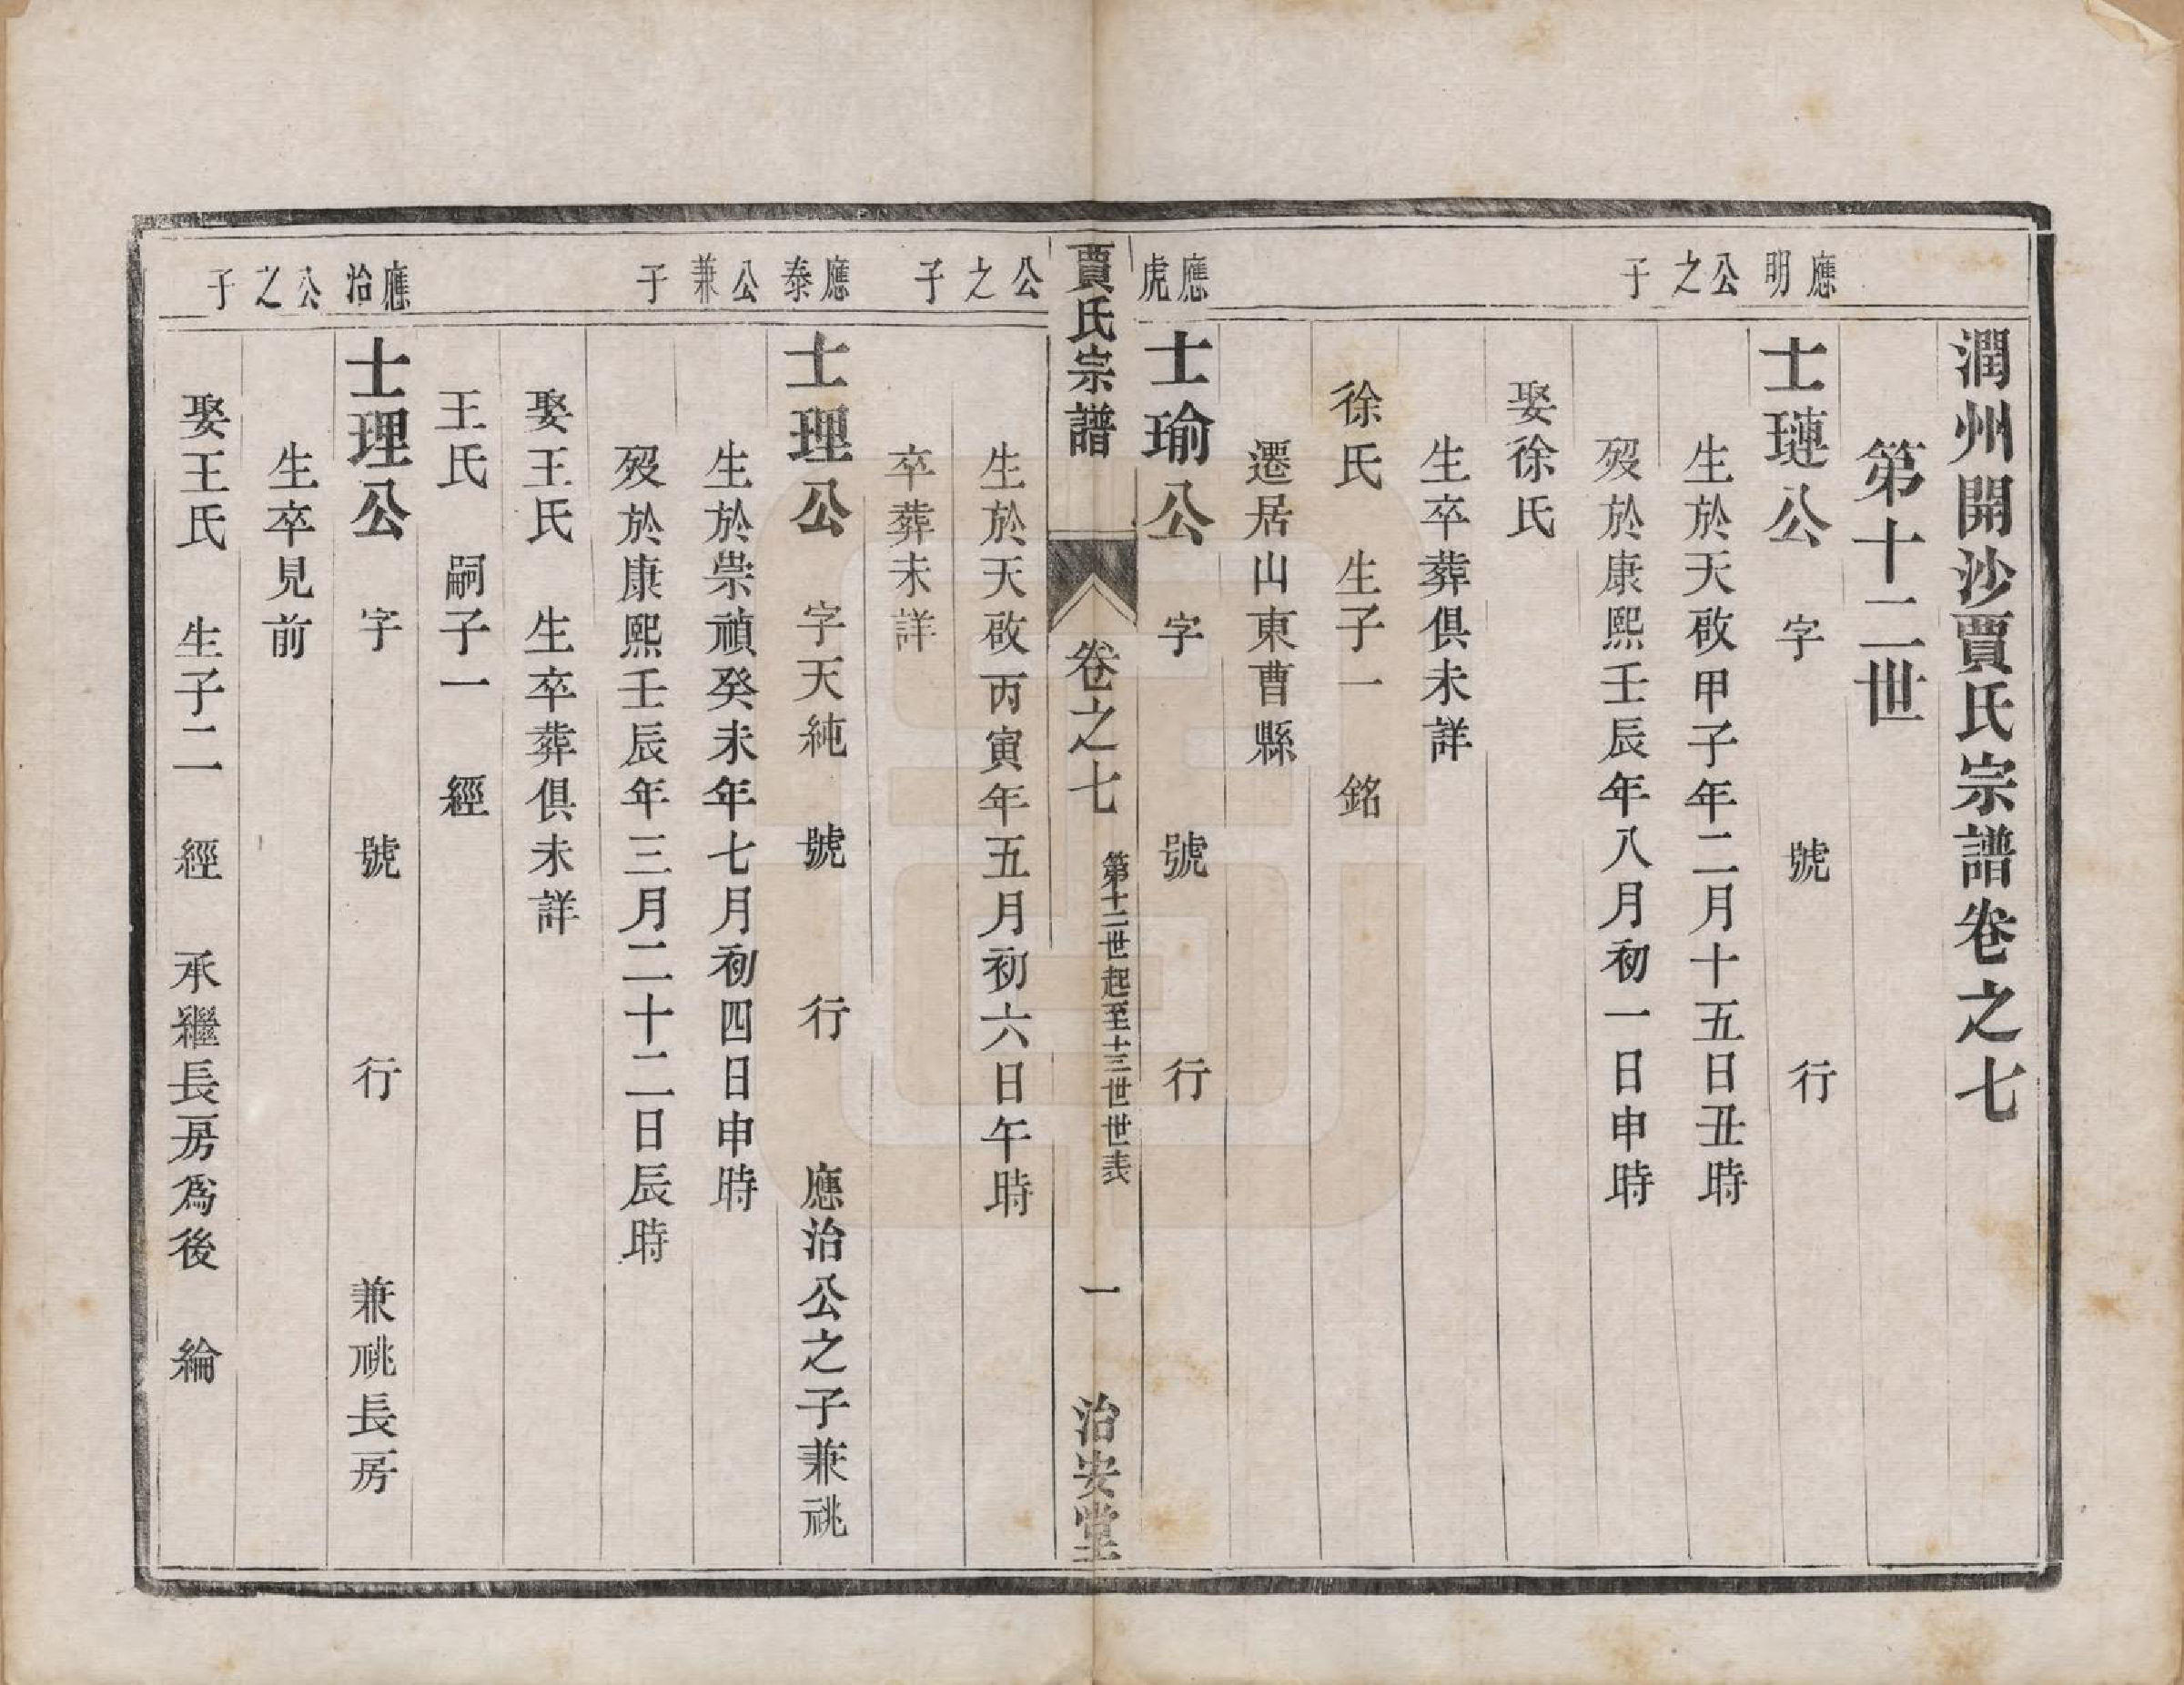 潤州開沙賈氏宗譜卷之七
第十二世
應明公之子
士璉公 字 號 行
生於天啟甲子年二月十五日丑時
歿於康熙壬辰年八月初一日申時
娶徐氏
生卒葬俱未詳
徐氏 生子一 銘
遷居山東曹縣
應虎公之子
士瑜公 字 號 行
賈氏宗譜 卷之七 第十二世起至十三世世表 一 治安堂
生於天啟丙寅年五月初六日午時
卒葬未詳
應泰公兼子
士理公 字天純 號 行 應治公之子兼祧
生於崇禎癸未年七月初四日申時
歿於康熙壬辰年三月二十二日辰時
娶王氏 生卒葬俱未詳
王氏 嗣子一 經
應治公之子
士理公 字 號 行 兼祧長房
生卒見前
娶王氏 生子二 經 承繼長房爲後 綸